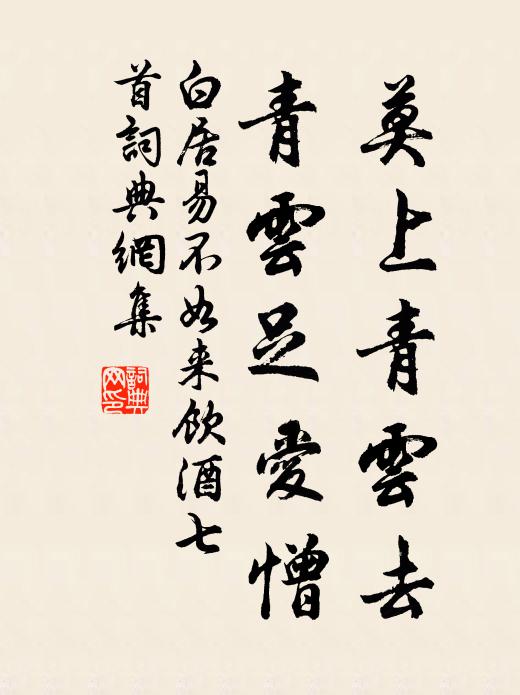 莫上青雲去
青雲足愛憎
白居易不如来飲酒七
首詞典網集
詞典
网印